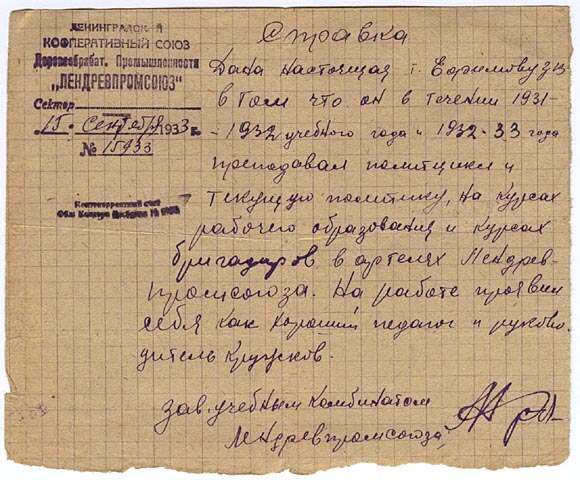 ЛЕНИНГРАДСКИЙ
КООПЕРАТИВНЫЙ СОЮЗ
Деревообрабат. Промышленности
„ЛЕНДРЕВПРОМСОЮЗ"
Сектор
15 Сентября 1933 г.
№ 15933
Контокоррентный счет
Справка
Дана настоящая т. Ефимову
в том что он в течении 1931-
-1932 учебного года и 1932-33 года
преподавал политцикл и
текущую политику, на курсах
рабочего образования и курсах
бригадиров в артелях Лендрев-
промсоюза. На работе проявил
себя как хороший педагог и руково-
дитель кружков.
зав. учебным комбинатом
Лендревпромсоюза